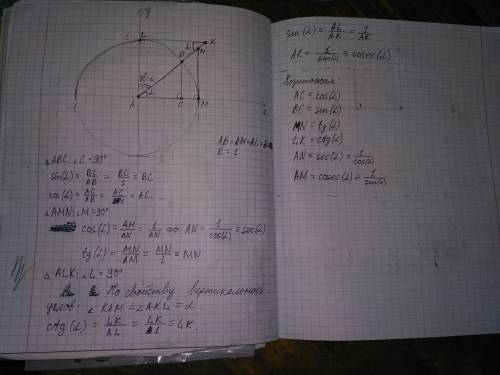 1
L
K
L
N
B
90-α
α
A
C
M
1
1
AB=AM=AL=
R=1
△ABC: ∠C=90°
sin(α) = BC/AB = BC/1 = BC
cos(α) = AC/AB = AC/1 = AC
△AMN: ∠M=90°
cos(α) = AM/AN = 1/AN ⇔ AN = 1/cos(α) = sec(α)
tg(α) = MN/AM = MN/1 = MN
△ALK: ∠L=90°
По свойству
углов: ∠KAM = ∠AKL = α
ctg(α) = LK/AL = LK/1 = LK.
sin(α) = AL/AK = 1/AK
AK = 1/sin(α) = cosec(α)
AC = cos(α)
BC = sin(α)
MN = tg(α)
LK = ctg(α)
AN = sec(α) = 1/cos(α)
AM = cosec(α) = 1/sin(α)